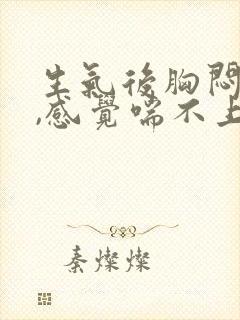 生氣後胸悶
,感覺喘不上
秦燦燦